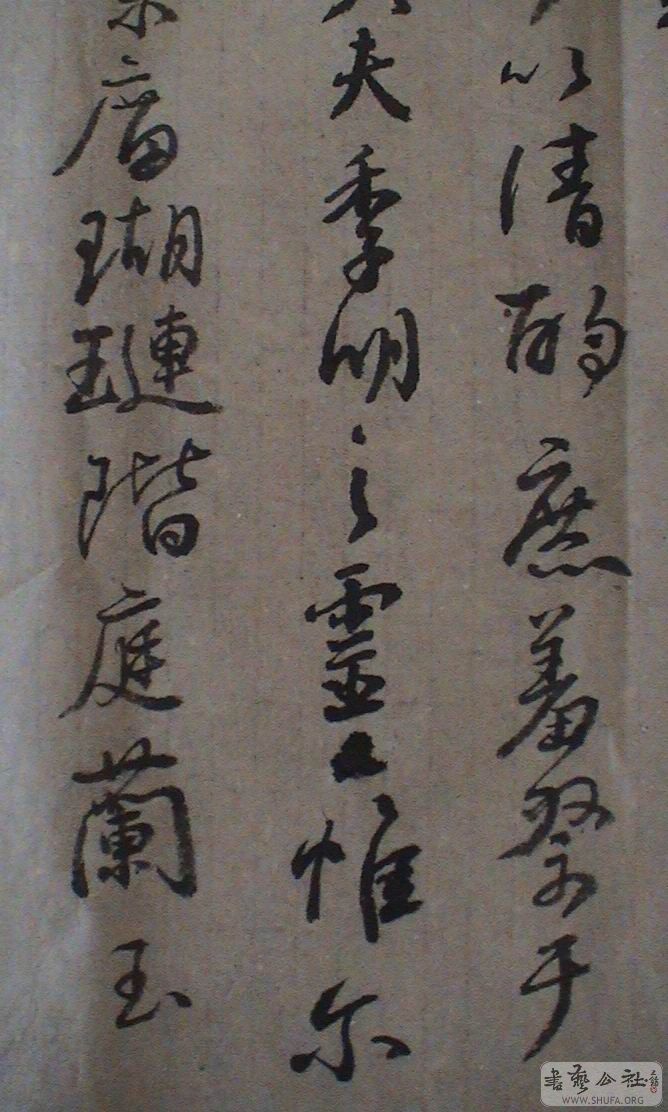 以清酌庶羞祭于
夫季明之靈惟尔
庿瑚璉階庭蘭玉
書藝公社
WWW.SHUFA.ORG